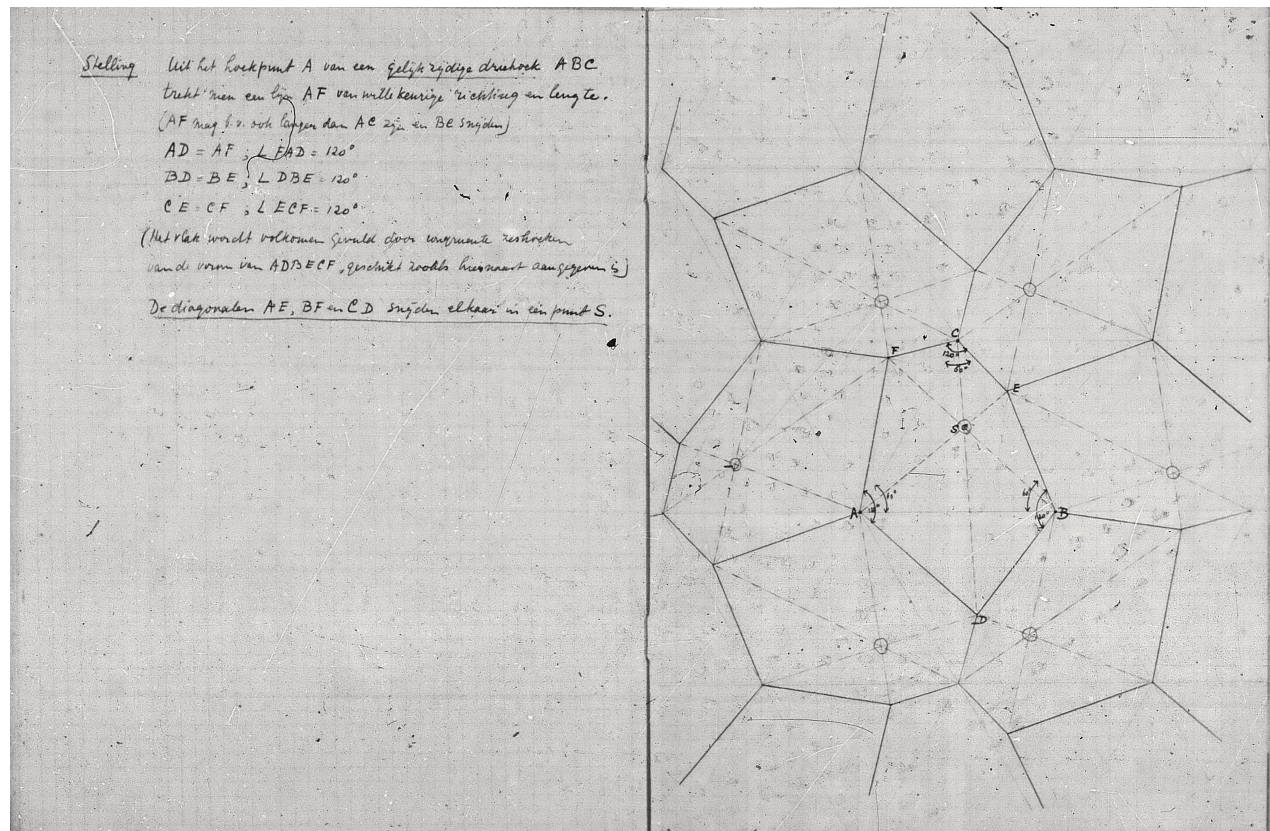 Stelling Uit het hoekpunt A van een gelijkzijdige driehoek ABC
trekt men een lijn AF van willekeurige richting en lengte.
(AF mag b.v. ook langer dan AC zijn en BC snijden)
AD = AF ; ∠ FAD = 120°
BD = BE ; ∠ DBE = 120°
CE = CF ; ∠ ECF = 120°
(Het vlak wordt volkomen gevuld door congruente zeshoeken
van de vorm van ADBECF, geschikt zooals hiernaast aangegeven is)
De diagonalen AE, BF en CD snijden elkaar in één punt S.
C
F
120°
60°
E
S
A
60°
120°
60°
120°
B
D